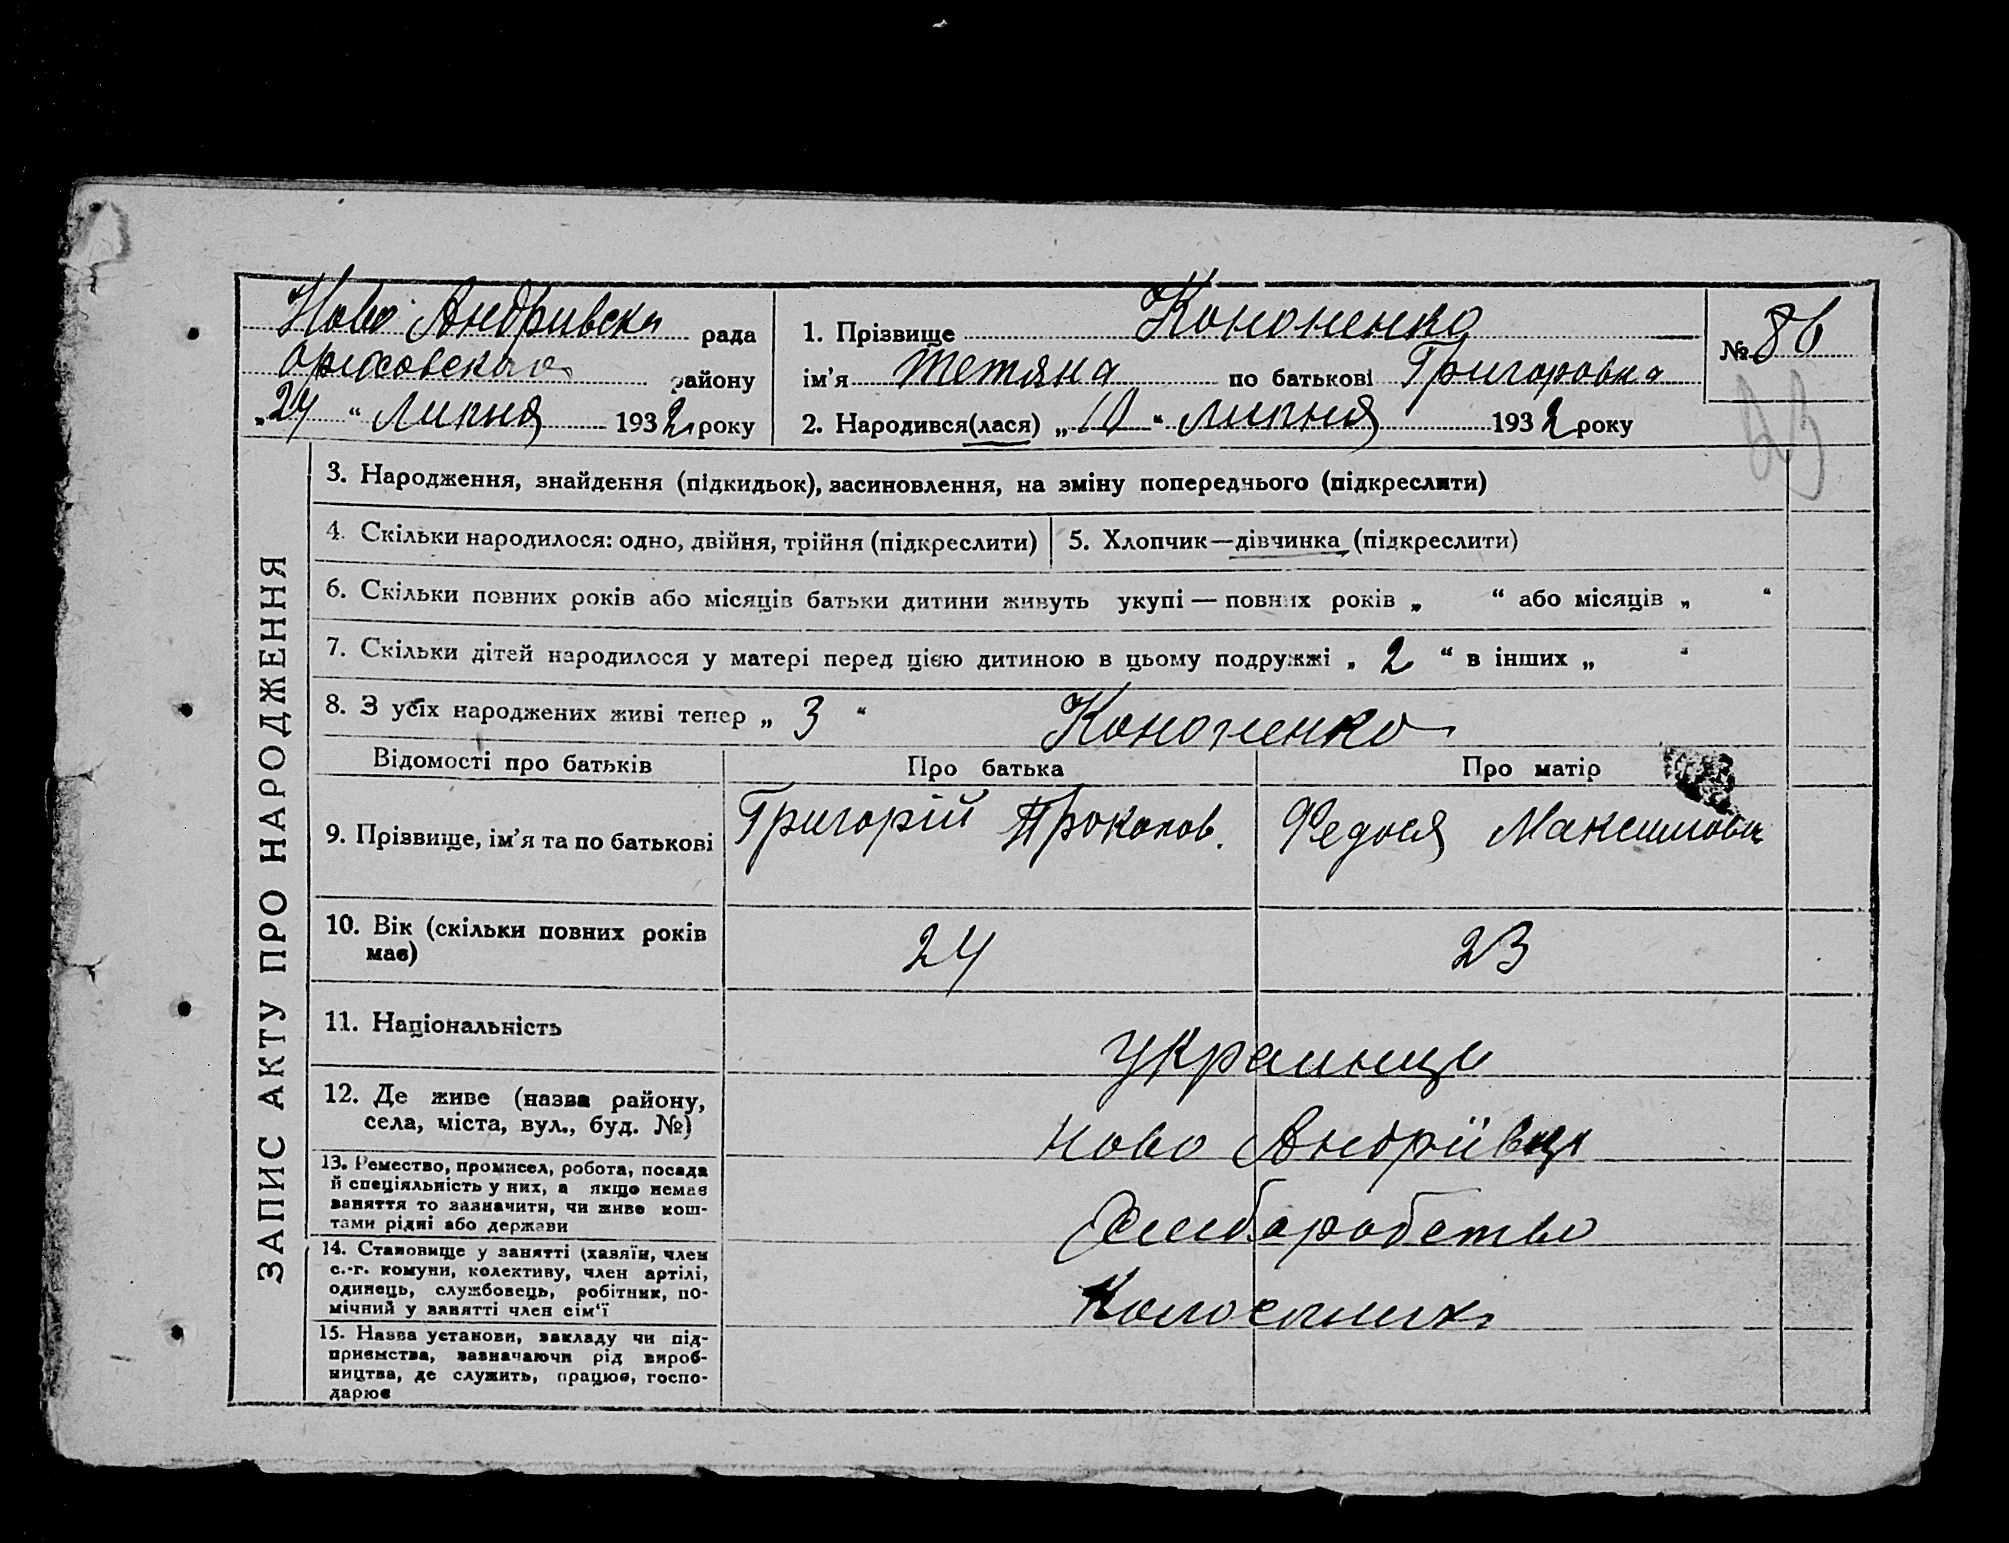 Ново Андривска рада
Оріховского району
„24“ Липня 1932 року
1. Прізвище Кононенко
ім’я Тетяна по батькові Григоровна
2. Народився(лася) „10“ липня 1932 року
№ 86
ЗАПИС АКТУ ПРО НАРОДЖЕННЯ
3. Народження, знайдення (підкидьок), засиновлення, на зміну попереднього (підкреслити)
4. Скільки народилося: одно, двійня, трійня (підкреслити)
5. Хлопчик—дівчинка (підкреслити)
6. Скільки повних років або місяців батьки дитини живуть укупі — повних років „ “ або місяців „ “
7. Скільки дітей народилося у матері перед цією дитиною в цьому подружжі „ 2 “ в інших „ “
8. З усіх народжених живі тепер „ 3 “ Кононенко
Відомості про батьків
Про батька
Про матір
9. Прізвище, ім’я та по батькові
Григорій Прокопов.
Федося Максимовна
10. Вік (скільки повних років
має)
24
23
11. Національність
Украинци
12. Де живе (назва району,
села, міста, вул., буд. №)
Ново Андріївці
13. Ремество, промисел, робота, посада
й спеціяльність у них, а якщо немає
заняття то зазначити, чи живе кош-
тами рідні або держави
Хлиборобство
14. Становище у занятті (хазяїн, член
с.-г. комуни, колективу, член артілі,
одинець, службовець, робітник, по-
мічний у занятті член сім‘ї
Колоспники
15. Назва установи, закладу чи під-
приємства, зазначаючи рід вироб-
ництва, де служить, працює, госпо-
дарює